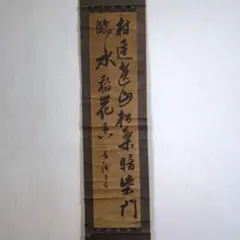 村逕遶山松葉暗柴門
臨水稻花香